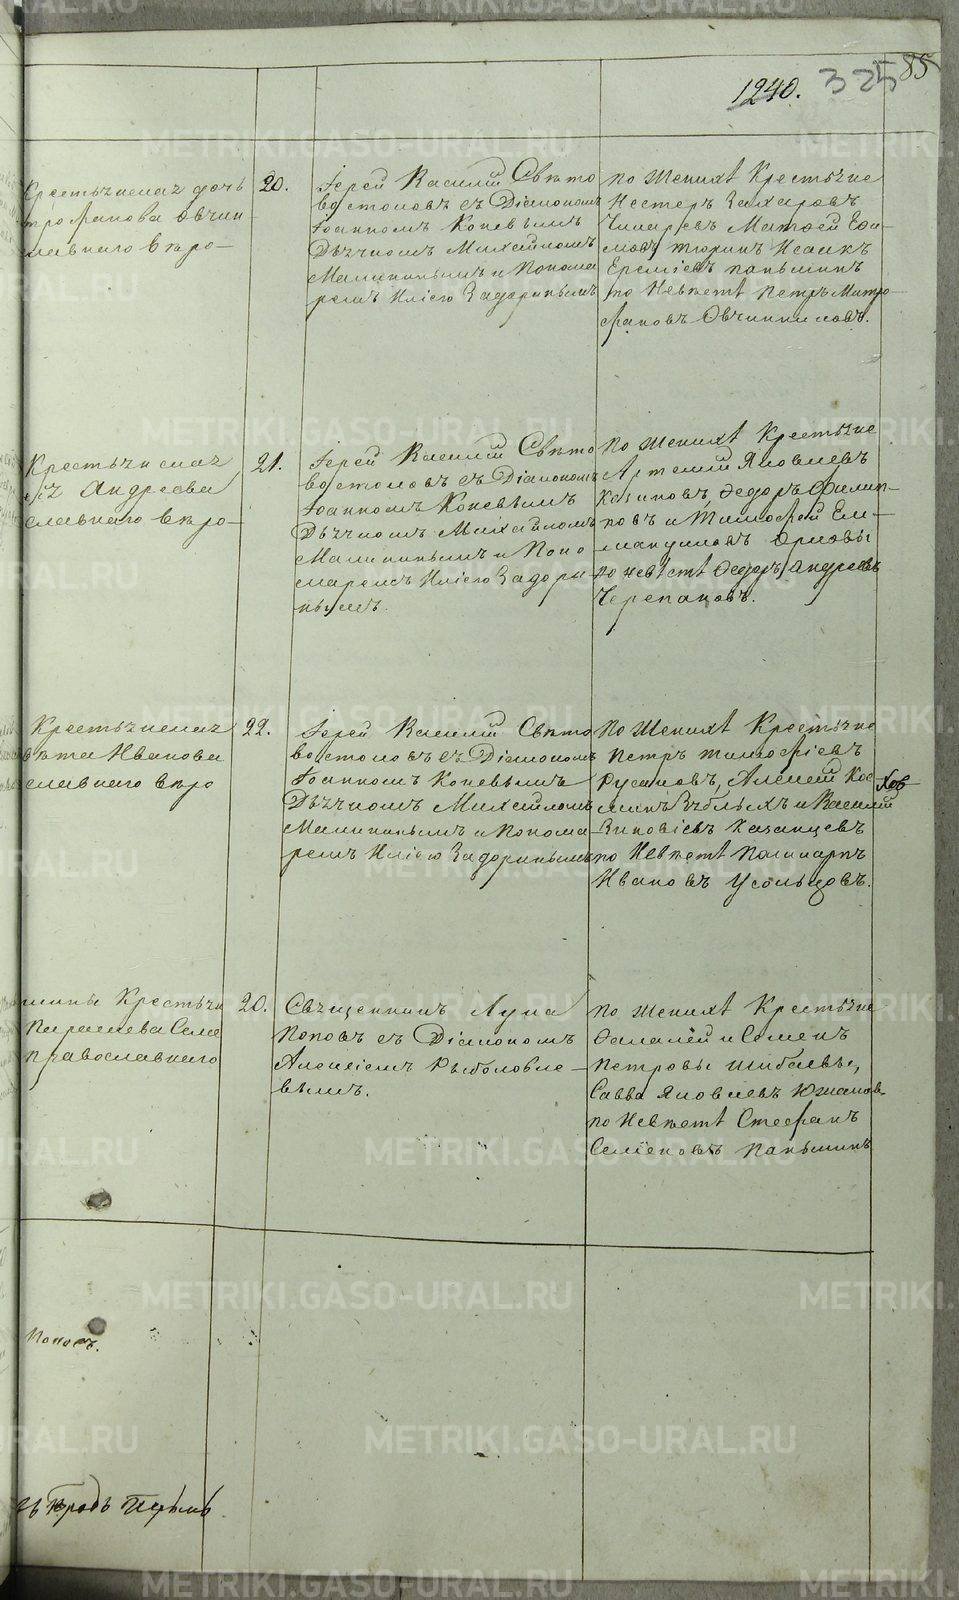 1240. 325 85
Крестьянская дочь
трофанова Овчин
славнаго вѣро-
20.
Іерей Василій Свѣто
востоковъ съ Діакономъ
Іоанномъ Коневымъ
Дьячкомъ Михаиломъ
Малининымъ и Понома
ремъ Иліею Задоринымъ
по Женихѣ Крестьяне
Нестеръ Захаровъ
Матѳей Ефи-
мовъ Тюринъ Исаакъ
Еремѣевъ Паньшинъ
по Невѣстѣ Петръ Митро-
фановъ Овчинниковъ.
Крестьянская
Андреева
славнаго вѣро-
21.
Іерей Василій Свѣто
востоковъ съ Діакономъ
Іоанномъ Коневымъ
Дьячкомъ Михаиломъ
Малининымъ и Поно
маремъ Иліею Задори
нымъ.
по Женихѣ Крестьяне
Артемій Яковлевъ
Ѳедоръ Филип-
повъ и Тимофей Ем-
по невѣстѣ Ѳедоръ Андреевъ
Черепановъ.
Крестьянская
вѣта Иванова
славнаго вѣро
22.
Іерей Василій Свѣто
востоковъ съ Діакономъ
Іоанномъ Коневымъ
Дьячкомъ Михаиломъ
Малининымъ и Понома
ремъ Иліею Задоринымъ
по Женихѣ Крестьяне
Петръ Тимофѣевъ
Русаковъ, Алексѣй Кос-
и Василій
Зиновіевъ Казанцевъ
по Невѣстѣ Поликарпъ
Ивановъ Усольцовъ.
шины Крестьян
Параскева Семе
православнаго
20.
Священникъ Лука
Поповъ съ Діакономъ
Алексіемъ Рыболовле-
вымъ.
по Женихѣ Крестьяне
Ѳалалей и Семенъ
Петровы Шибаевы,
Савва Яковлевъ Южаков-
по Невѣстѣ Стефанъ
Семеновъ Паньшинъ
Поповъ.
METRIKI.GASO-URAL.RU